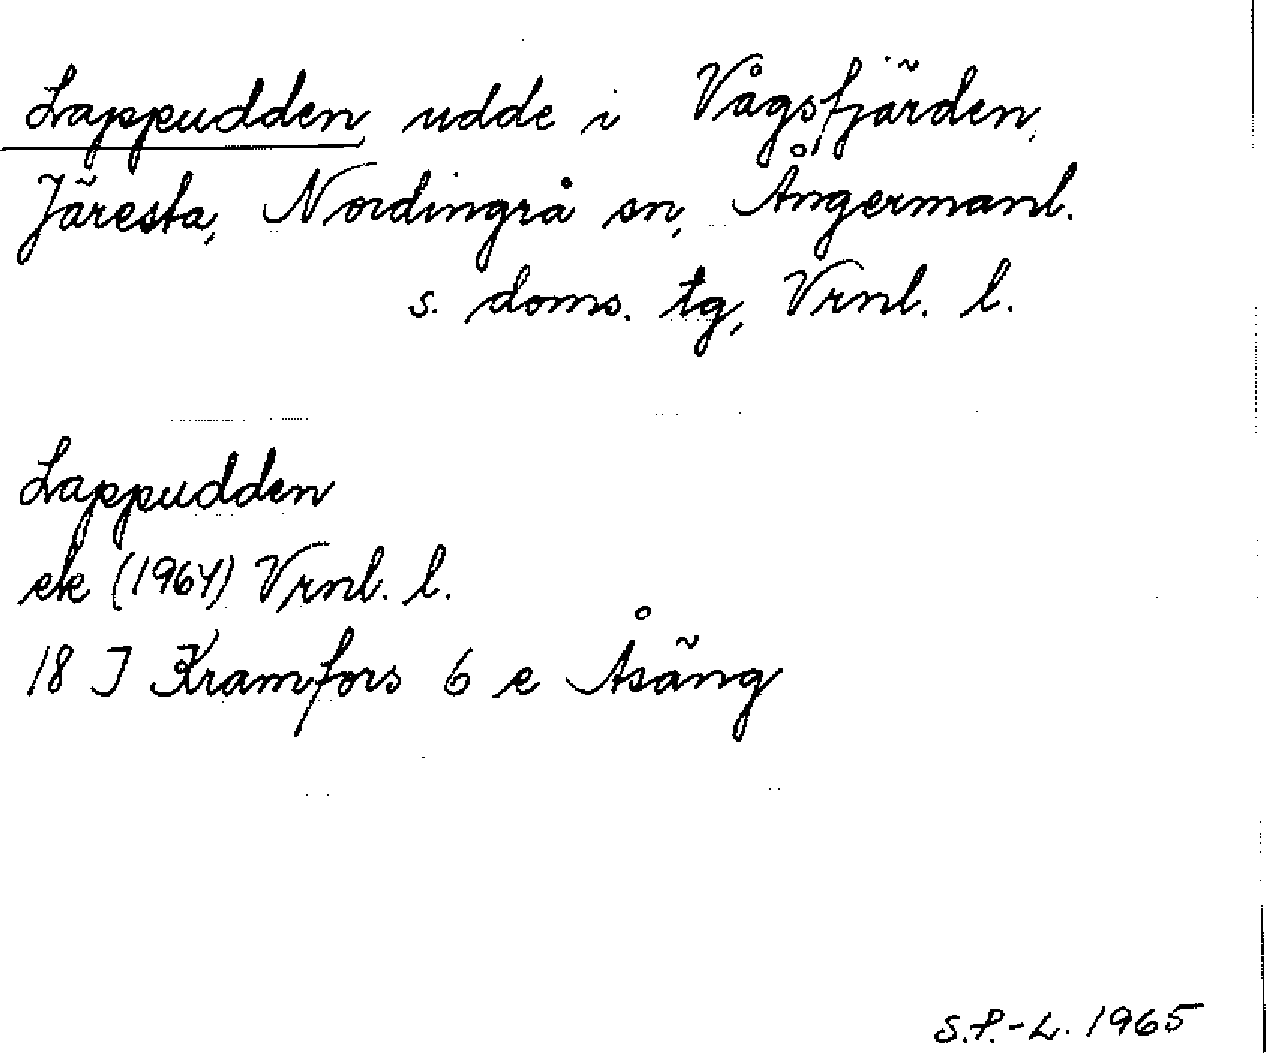 Lappudden udde i Vågsfjärden,
Järesta, Nordingrå sn, Ångermanl.
s. doms. tg, Vrnl. l.
Lappudden
ek (1964) Vrnl. l.
18 J Kramfors 6 e Åsäng
S.P.-L. 1965